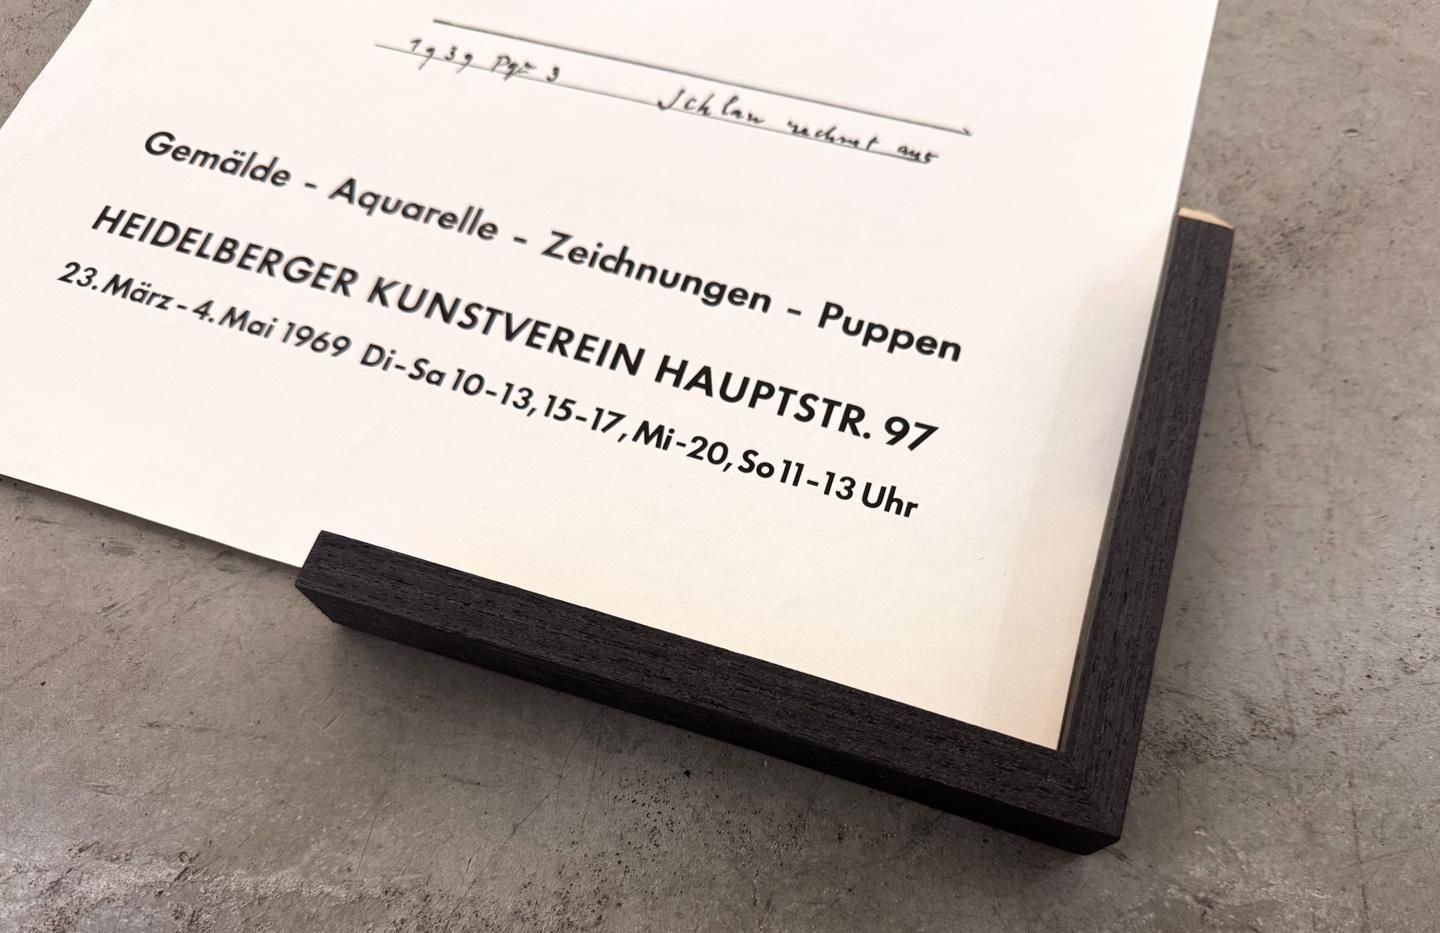 1939 Pqr 3 Schlau rechnet aus
Gemälde - Aquarelle - Zeichnungen - Puppen
HEIDELBERGER KUNSTVEREIN HAUPTSTR. 97
23. März - 4. Mai 1969 Di-Sa 10-13, 15-17, Mi-20, So 11-13 Uhr